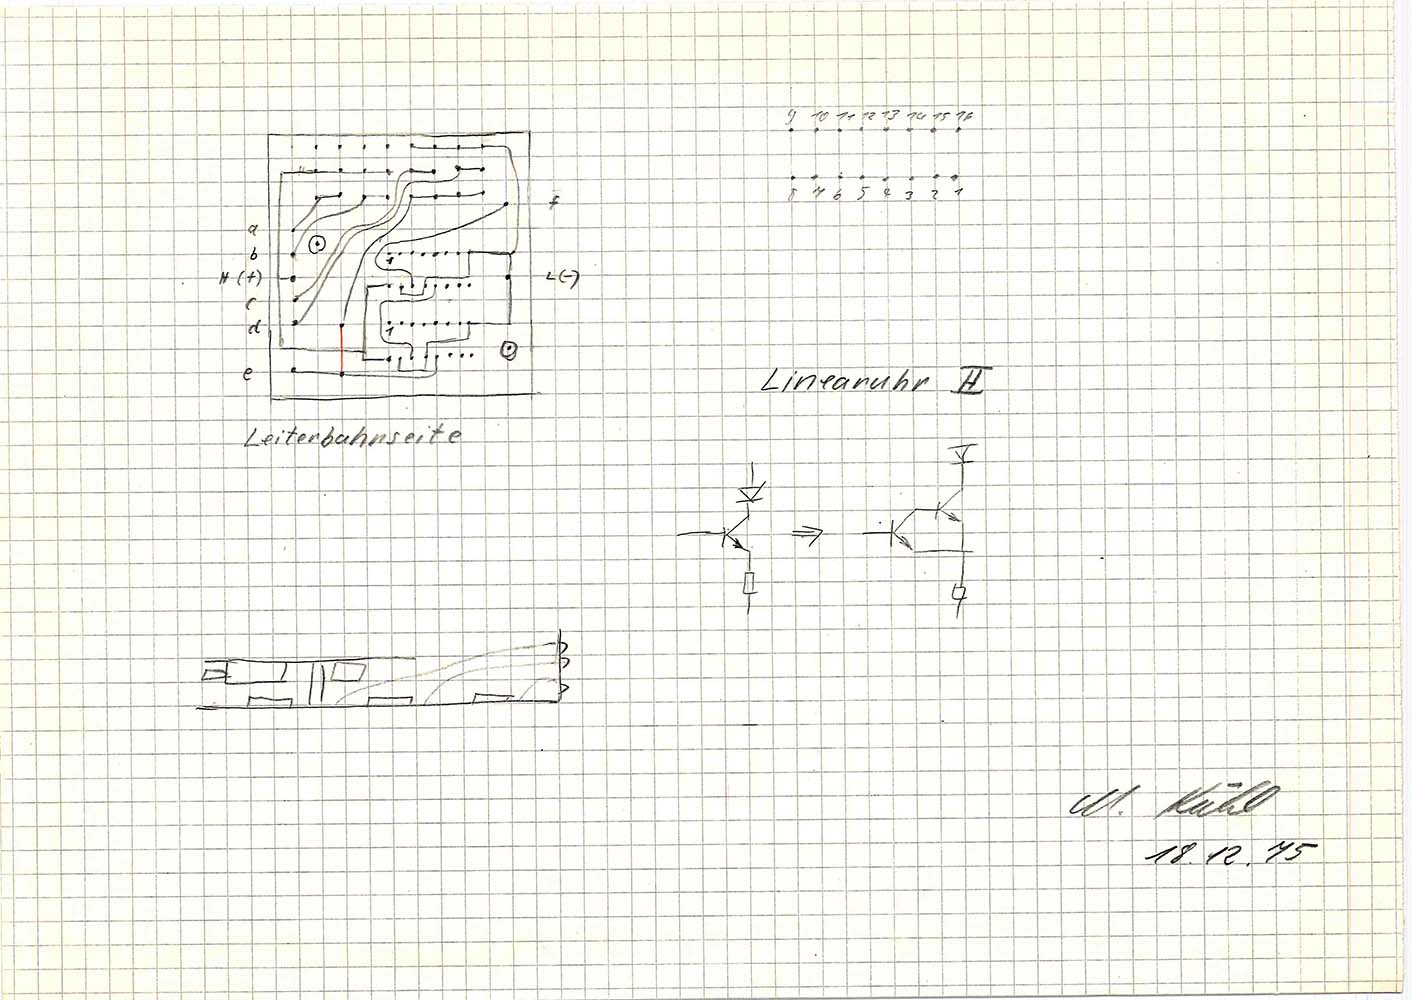 9 10 11 12 13 14 15 16
8 7 6 5 4 3 2 1
a
f
b
H (+)
L (-)
c
d
e
1
1
Leiterbahnseite
Linearuhr II
M. Kühl
18.12.75